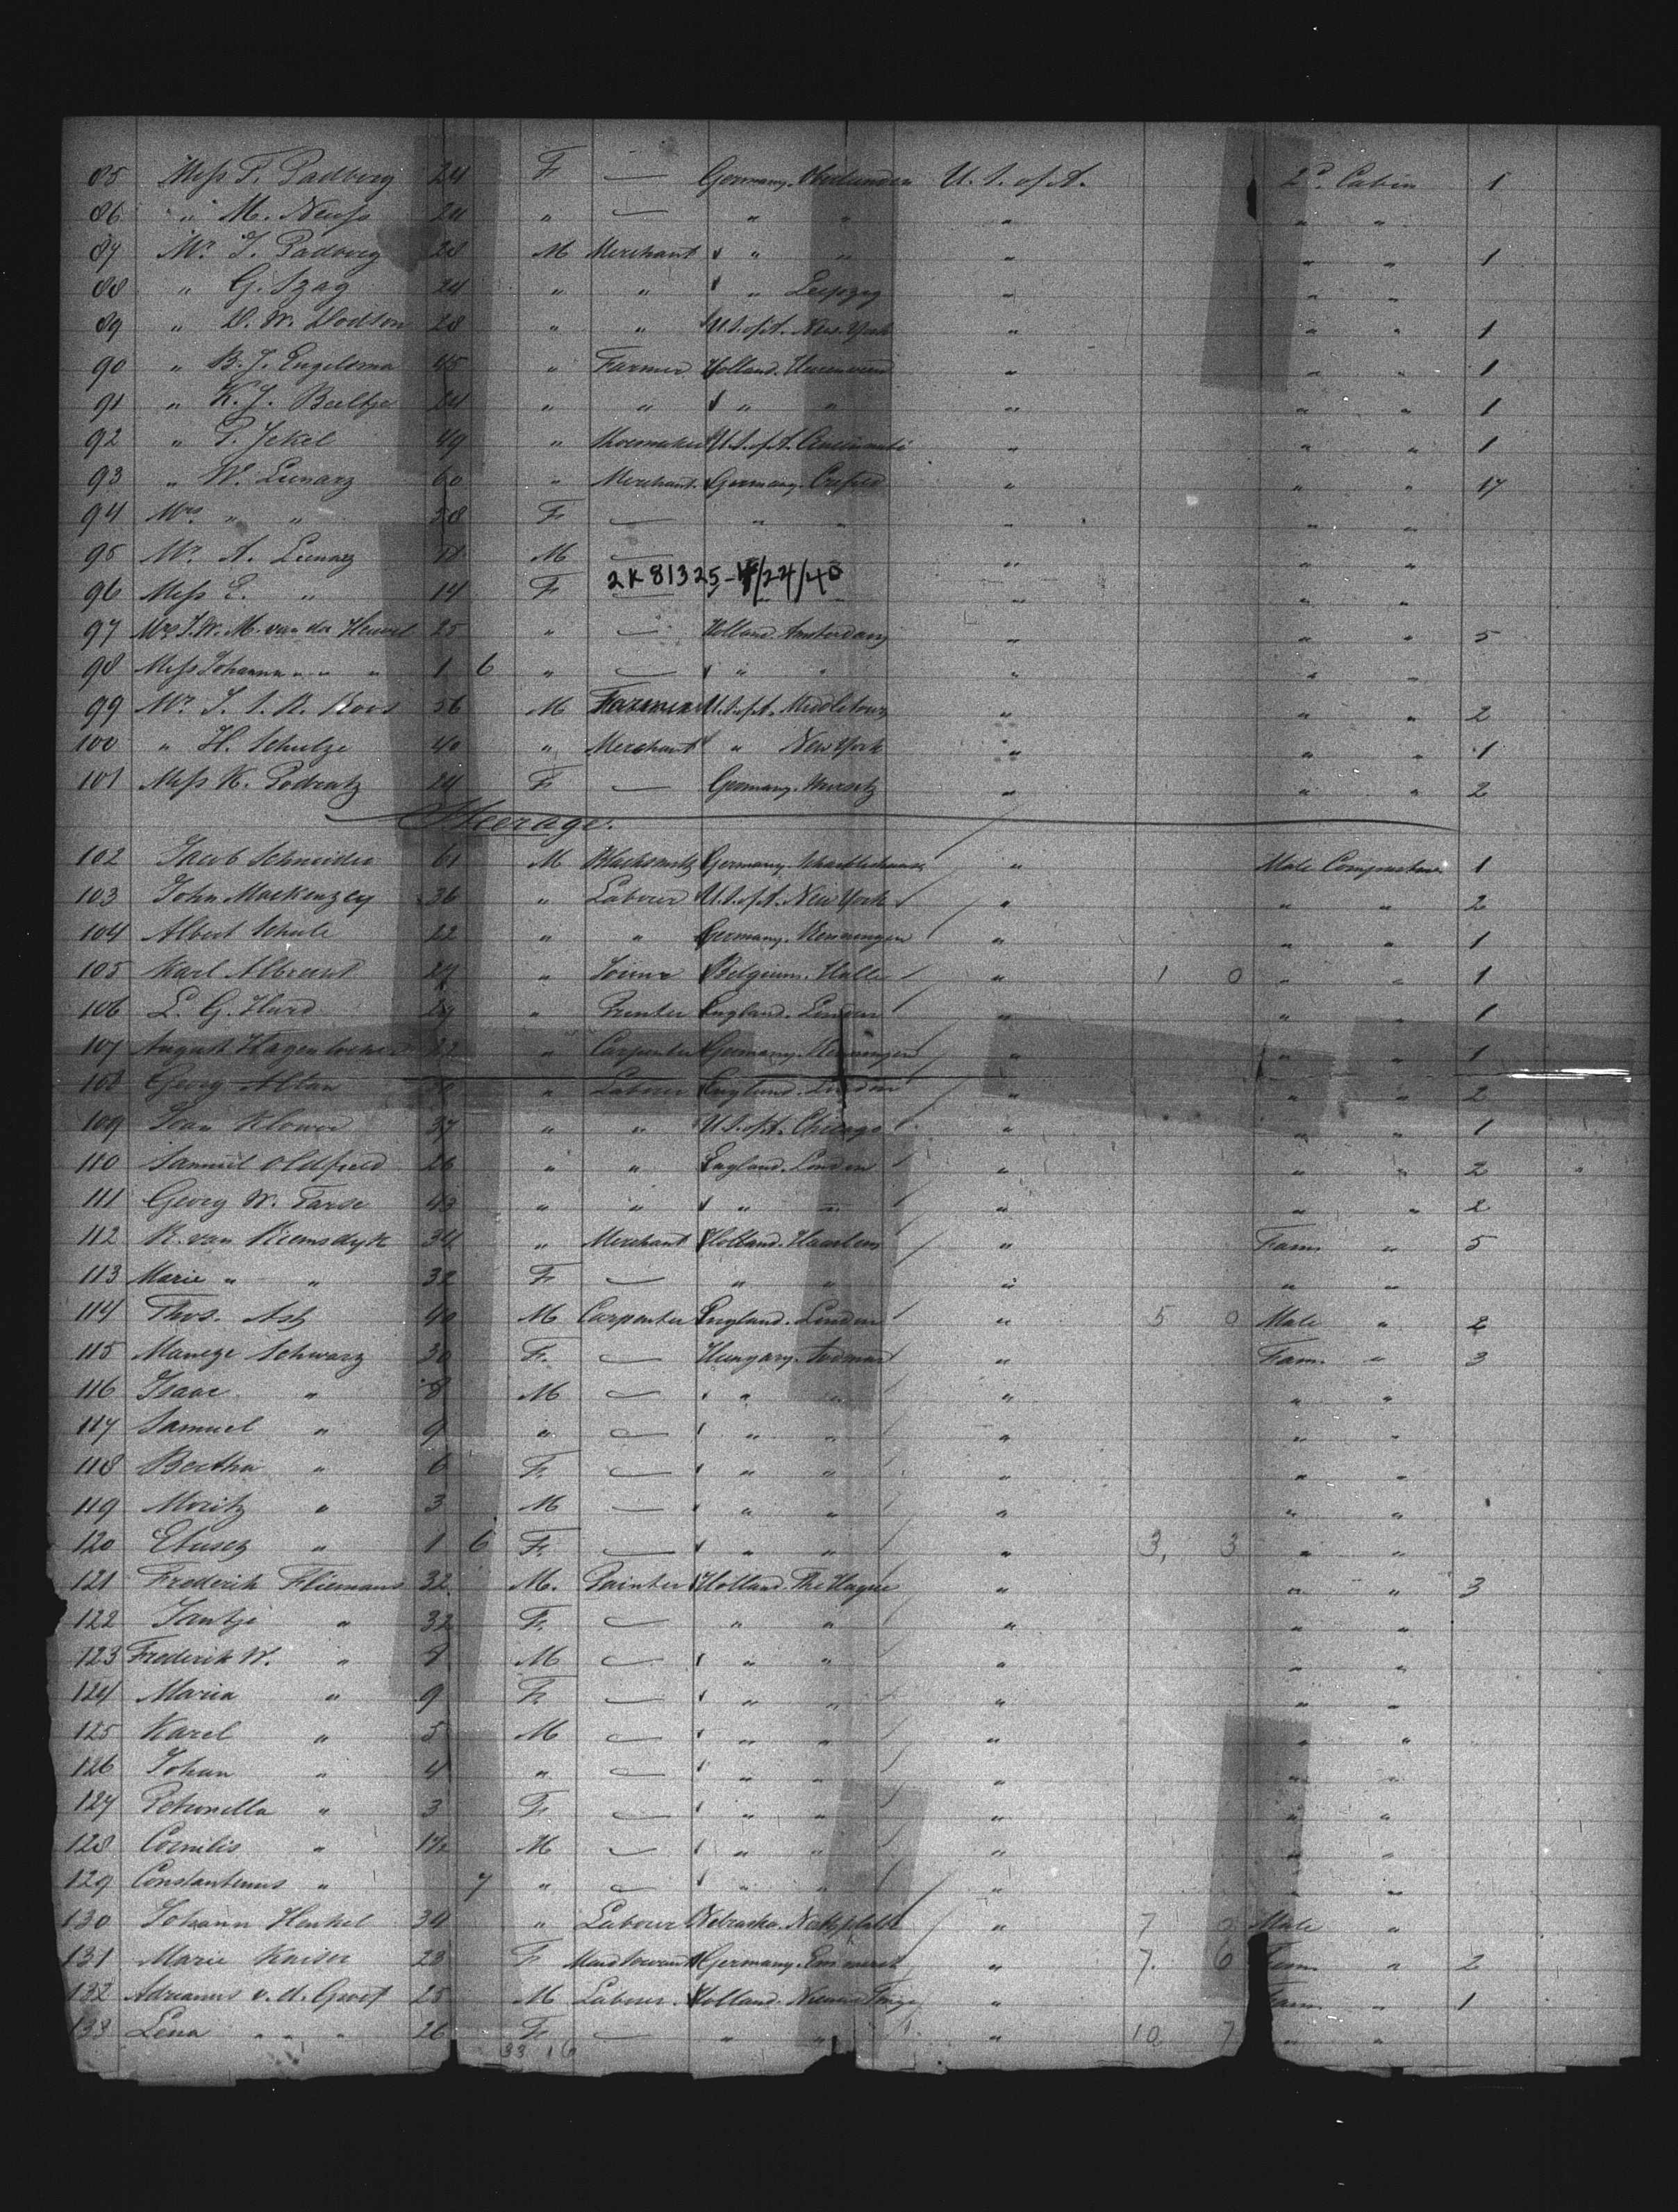 85 Miss T. Padberg 24 F — Germany. U. S. of A. 2d. Cabin 1
86 " M. Neuss 24 " — " " " " "
87 Mr. J. Padberg 28 M Merchant " " " " " 1
88 " G. Szag 24 " " " Leipzig " " "
89 " D. W. Dodson 28 " " U.S. of A. New York " " " 1
90 " B. J. Engelsma 45 " Farmer Holland. " " " 1
91 " K. J. Beeltje 24 " " " " " " " 1
92 " P. Jekel 49 " Shoemaker U.S. of A. Cincinnati " " " 1
93 " W. Lenarz 60 " Merchant Germany. Crefeld " " " 17
94 Mrs. " " 38 F — " " " " "
95 Mr. A. Lenarz 11 M — " " "
2 K 81325 - 4/24/40
96 Miss E. " 14 F — " " " "
97 Mrs J. W. M. van der Heuvel 25 " — Holland. Amsterdam " " " 5
98 Miss Johanna " " " 1 6 " — " " " " "
99 Mr. J. S. R. Koos 56 M Farmer U.S. of A. Middletown " " " 2
100 " H. Schulze 40 " Merchant " New York " " " 1
101 Miss K. Podratz 24 F — Germany. Wirsitz " " " 2
Steerage.
102 Jacob Schneider 61 M Blacksmith Germany. " Male Compartm. 1
103 John Mackenzey 36 " Labourer U.S. of A. New York " " " 2
104 Albert Schule 22 " " Germany. " " " 1
105 Karl Albrecht 27 " Joiner Belgium. Halle " 1 0 " " 1
106 L. G. Hurd 29 " Printer England. London " " " 1
107 August Hagenlocher 22 " Carpenter Germany. " " " 1
108 Georg Altan " Labour England. London " " " 2
109 Ivan Klowor 37 " " U.S. of A. Chicago " " " 1
110 Samuel Oldfield 26 " " England. London " " " 2
111 Georg W. Parse 43 " " " " " " " 2
112 K. van Riemsdyk 34 " Merchant Holland. Haarlem " Fam. " 5
113 Marie " " 32 F — " " " " "
114 Thos. Ash 40 M Carpenter England. London " 5 0 Male " 2
115 Manege Schwarz 30 F. — Hungary. " Fam. " 3
116 Isaac " 8 M — " " " " "
117 Samuel " 9 " — " " " " "
118 Bertha " 6 F. — " " " " "
119 Moritz " 3 M — " " " " "
120 " 1 6 F. — " " " 3, 3 " "
121 Frederik Fliemans 32 M. Painter Holland. The Hague " " " 3
122 Jantje " 32 F. — " " " " "
123 Frederik W. " 8 M — " " " " "
124 Maria " 9 F. — " " " " "
125 Karel " 5 M — " " " " "
126 Johan " 4 " — " " " " "
127 Petronella " 3 F. — " " " " "
128 Cornilis " 1½ M — " " " " "
129 Constantinus " 7 " — " " " " "
130 Johann Henkel 34 " Labour Nebraska. Northplatte " 7 0 Male "
131 Marie Kaiser 23 F Maid Servant Germany. " 7. 6 Fam. " 2
132 Adrianus v. d. Groef 25 M Labour. Holland. " Fam. " 1
133 Lena " " " 26 F. — " " " 10 7 " "
33 16